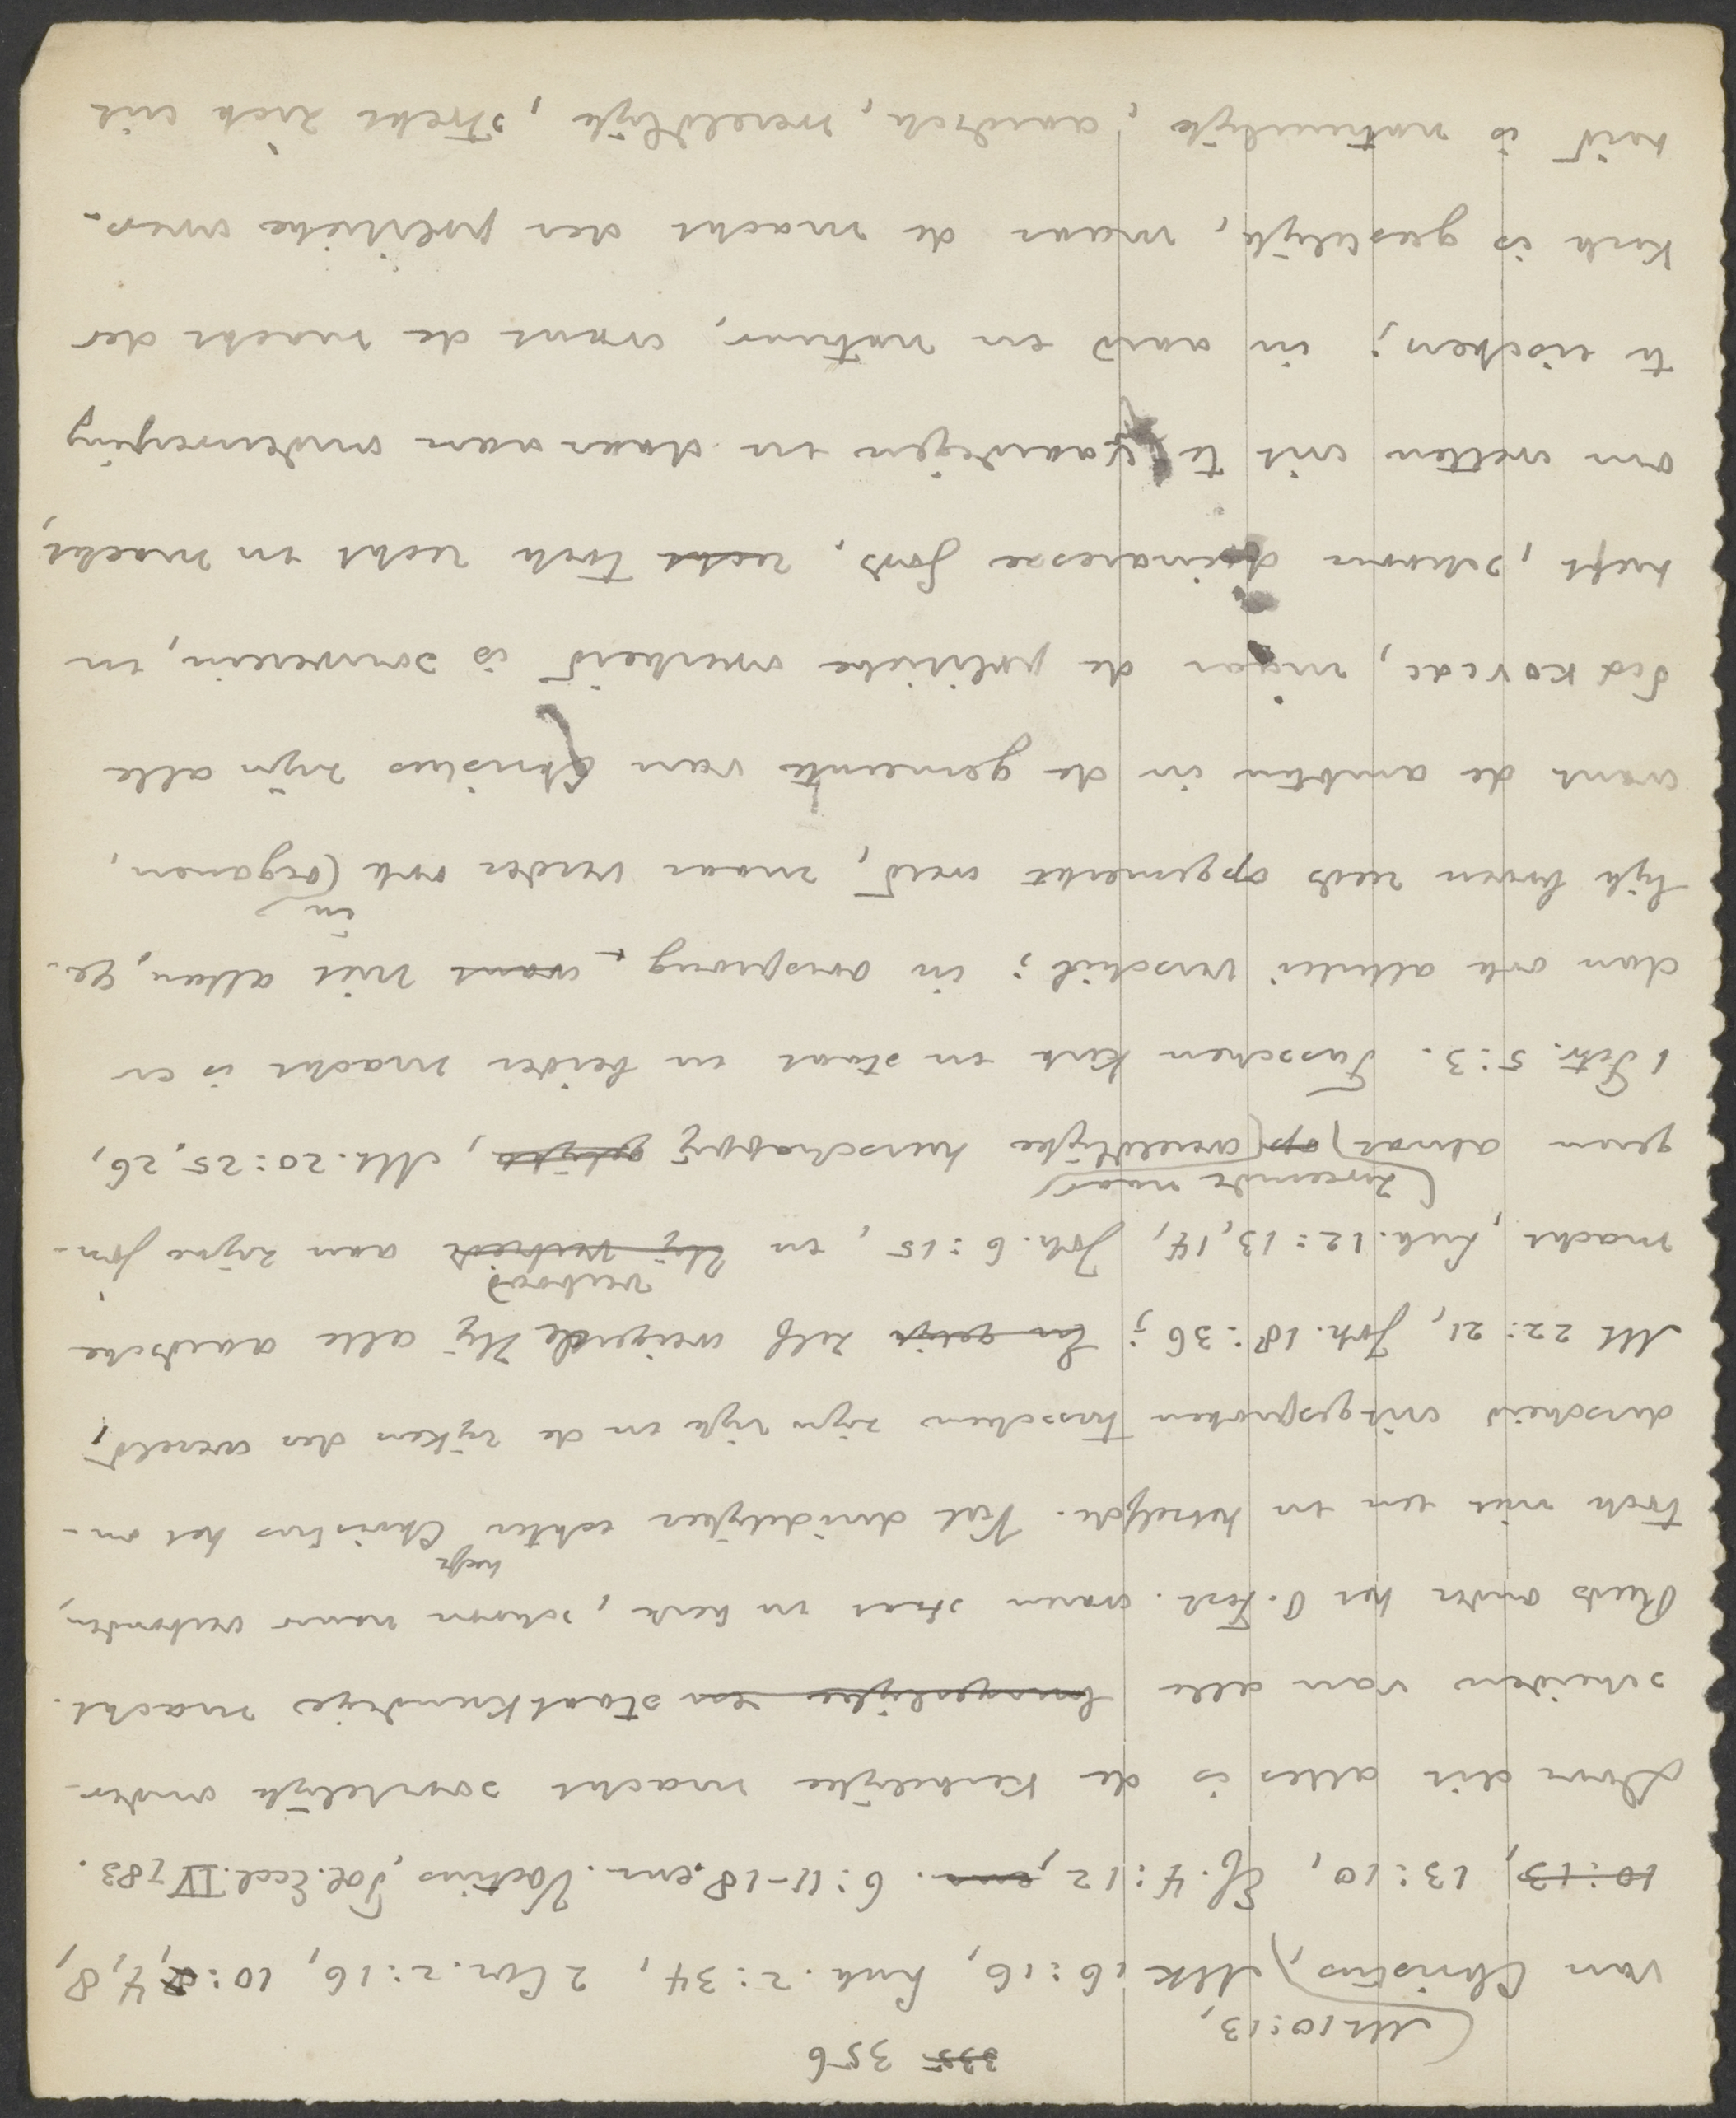 335 356
Mt 10:13,
van Christus, Mk 16:16, Luk. 2:34, 2 Cor. 2:16, 10:2, 4, 8,
10:13, 13:10, Ef. 4:12, enz. 6:11-18. enz. Voetius, Pol. Eccl. IV 783.
Door dit alles is de kerkelijke macht soortelijk onder-
scheiden van alle burgerlijke en staatkundige macht.
Reeds onder het O. Test. waren staat en kerk, schoon nauw verbonden,
toch niet een en hetzelfde. Veel duidelijker echter heeft Christus het on-
derscheid uitgesproken tusschen zijn rijk en de rijken der wereld,
Mt 22:21, Joh. 18:36; En gelijk zelf weigerde Hij alle aardsche
macht, Luk. 12:13, 14, Joh. 6:15, en Hij verbiedt verbood aan zijne jon-
geren alwat op zweemde naar wereldlijke heerschappij gelijkt, Mt. 20:25, 26,
1 Petr. 5:3. Tusschen kerk en staat en beider macht is er
dan ook allerlei verschil; in oorsprong, want niet alleen, ge-
lijk boven reeds opgemerkt werd, maar verder ook in organen,
want de ambten in de gemeente van Christus zijn alle
διακονιαι, maar de politieke overheid is souverein, en
heeft, schoon dienaresse Gods, recht toch recht en macht,
om wetten uit te vaardigen en daaraan onderwerping
te eischen; in aard en natuur, want de macht der
kerk is geestelijk, maar de macht der politieke over-
heid is natuurlijk, aardsch, wereldlijk, strekt zich uit